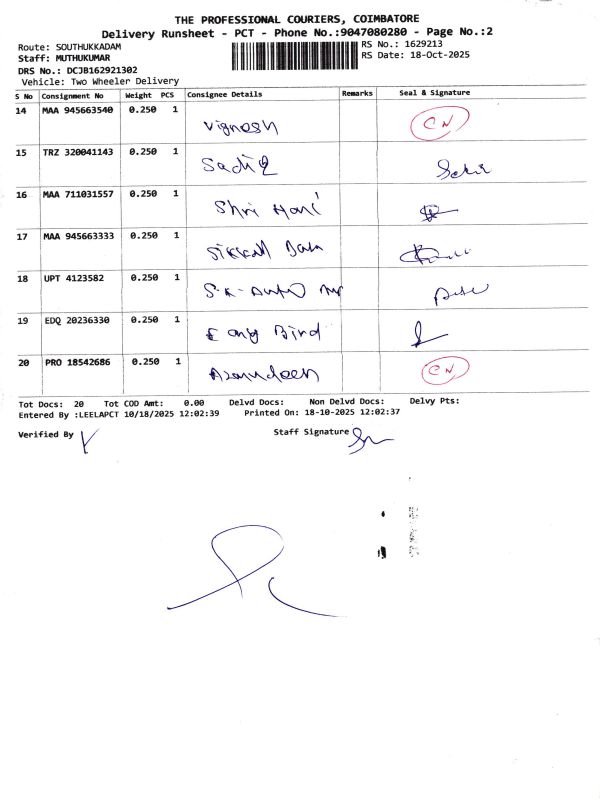 THE PROFESSIONAL COURIERS, COIMBATORE
Delivery Runsheet - PCT - Phone No.:9047080280 - Page No.:2
Route: SOUTHUKKADAM RS No.: 1629213
Staff: MUTHUKUMAR RS Date: 18-Oct-2025
DRS No.: DCJB162921302
Vehicle: Two Wheeler Delivery
S No Consignment No Weight PCS Consignee Details Remarks Seal & Signature
14 MAA 945663540 0.250 1 Vignesh CN
15 TRZ 320041143 0.250 1 Sadiq
16 MAA 711031557 0.250 1 Shri Hari
17 MAA 945663333 0.250 1
18 UPT 4123582 0.250 1 S.K. Auto
19 EDQ 20236330 0.250 1 Bird
20 PRO 18542686 0.250 1 Azarudeen CN
Tot Docs: 20 Tot COD Amt: 0.00 Delvd Docs: Non Delvd Docs: Delvy Pts:
Entered By :LEELAPCT 10/18/2025 12:02:39 Printed On: 18-10-2025 12:02:37
Verified By Staff Signature